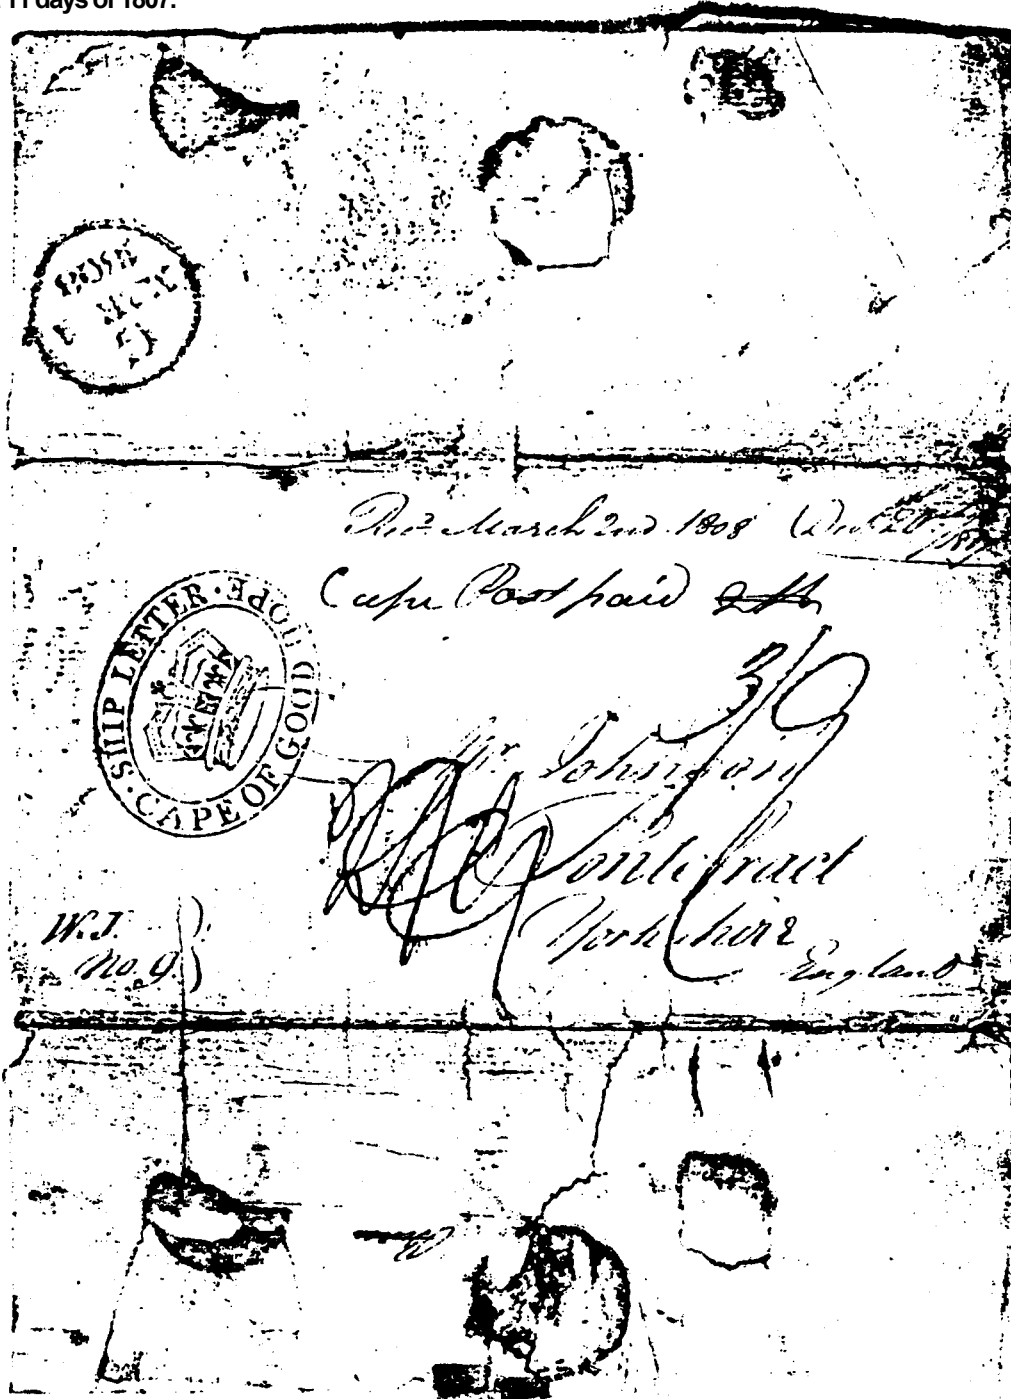 11 days of 1807.
March 2nd 1808
Cape Post paid
SHIP LETTER · CAPE OF GOOD HOPE ·
3/
Mr. Johnson
Pontefract
Yorkshire
England
W.J.
No. 9.